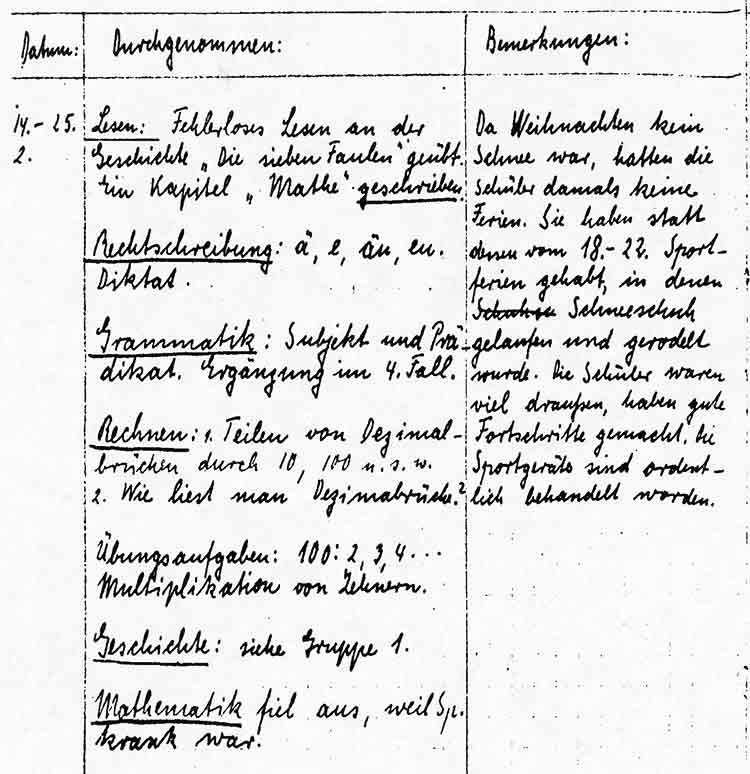 Datum:
Durchgenommen:
Bemerkungen:
14.-25.
2.
Lesen: Fehlerloses Lesen an der
Geschichte „Die sieben Faulen" geübt.
Ein Kapitel „Mathe" geschrieben.
Rechtschreibung: ä, e, äu, eu.
Diktat.
Grammatik: Subjekt und Prä-
dikat. Ergänzung im 4. Fall.
Rechnen: 1. Teilen von Dezimal-
brüchen durch 10, 100 u.s.w.
2. Wie liest man Dezimabrüche?
Übungsaufgaben: 100: 2, 3, 4...
Multiplikation von Zehnern.
Geschichte: siehe Gruppe 1.
Mathematik fiel aus, weil Sp.
krank war.
Da Weihnachten kein
Schnee war, hatten die
Schüler damals keine
Ferien. Sie haben statt
dessen vom 18.-22. Sport-
ferien gehabt, in denen
Schneeschuh
gelaufen und gerodelt
wurde. Die Schüler waren
viel draußen, haben gute
Fortschritte gemacht. Die
Sportgeräte sind ordent-
lich behandelt worden.